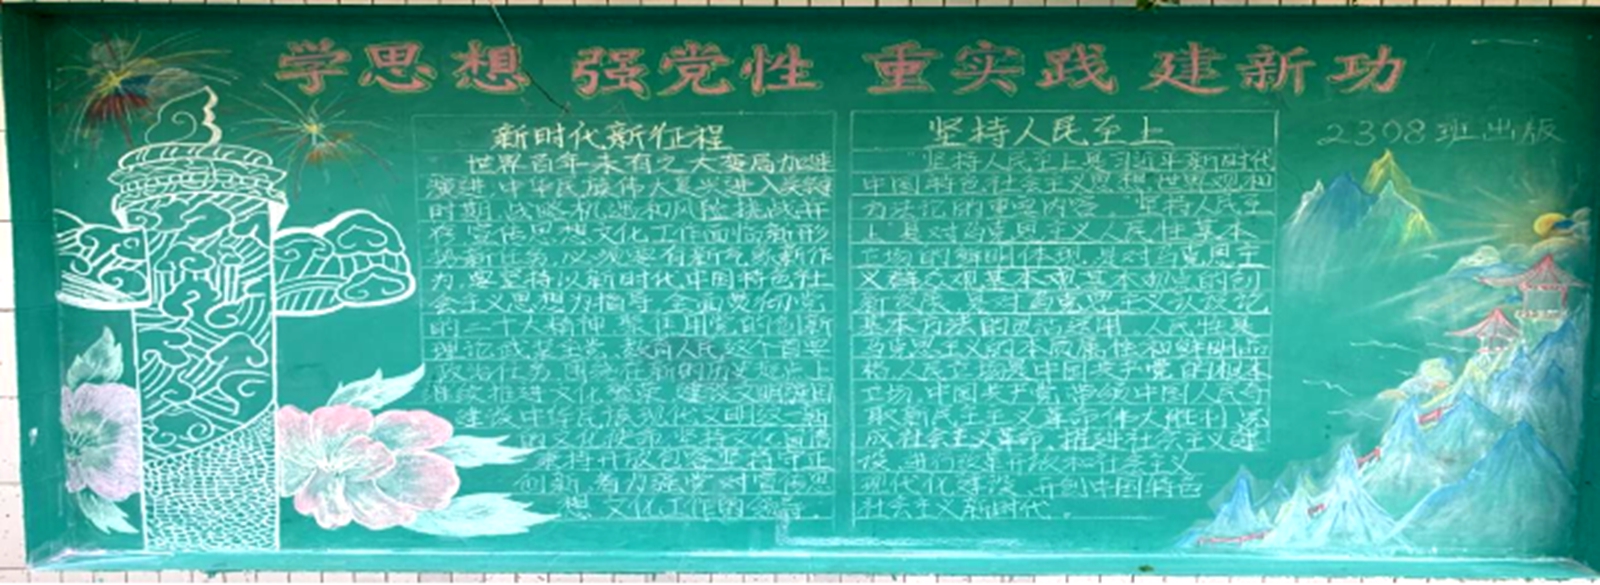 学思想 强党性 重实践 建新功
2308班出版
新时代新征程
世界百年未有之大变局加速
演进,中华民族伟大复兴进入关键
时期,战略机遇和风险挑战并
存,宣传思想文化工作面临新形
势新任务,必须要有新气象新作
为,要坚持以新时代中国特色社
会主义思想为指导,全面贯彻党
的二十大精神,聚焦用党的创新
理论武装全党、教育人民这个首要
政治任务,围绕在新的历史起点上
继续推动文化繁荣、建设文化强国
建设中华民族现代文明这一新
的文化使命,坚定文化自信
秉持开放包容,坚持守正
创新,着力加强党对宣传思
想文化工作的领导
坚持人民至上
坚持人民至上是习近平新时代
中国特色社会主义思想世界观和
方法论的重要内容。坚持人民至
上是对马克思主义人民性基本
立场的鲜明体现,是对马克思主
义群众观基本观基本观点的创
新发展,是对马克思主义
基本方法的灵活运用。人民性是
马克思主义的本质属性和鲜明品
格,人民立场是中国共产党的根本
立场,中国共产党带领中国人民夺
取新民主主义革命伟大胜利,完
成社会主义革命,推进社会主义建
设,进行改革开放和社会主义
现代化建设,开创中国特色
社会主义新时代。